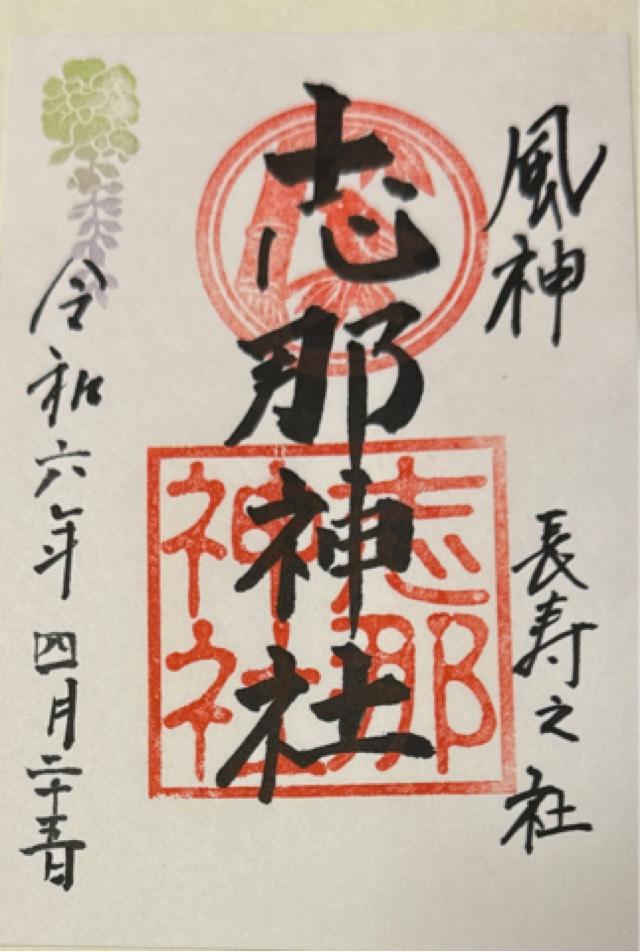 風神
長寿之社
志那神社
志那
神社
令和六年四月二十五日